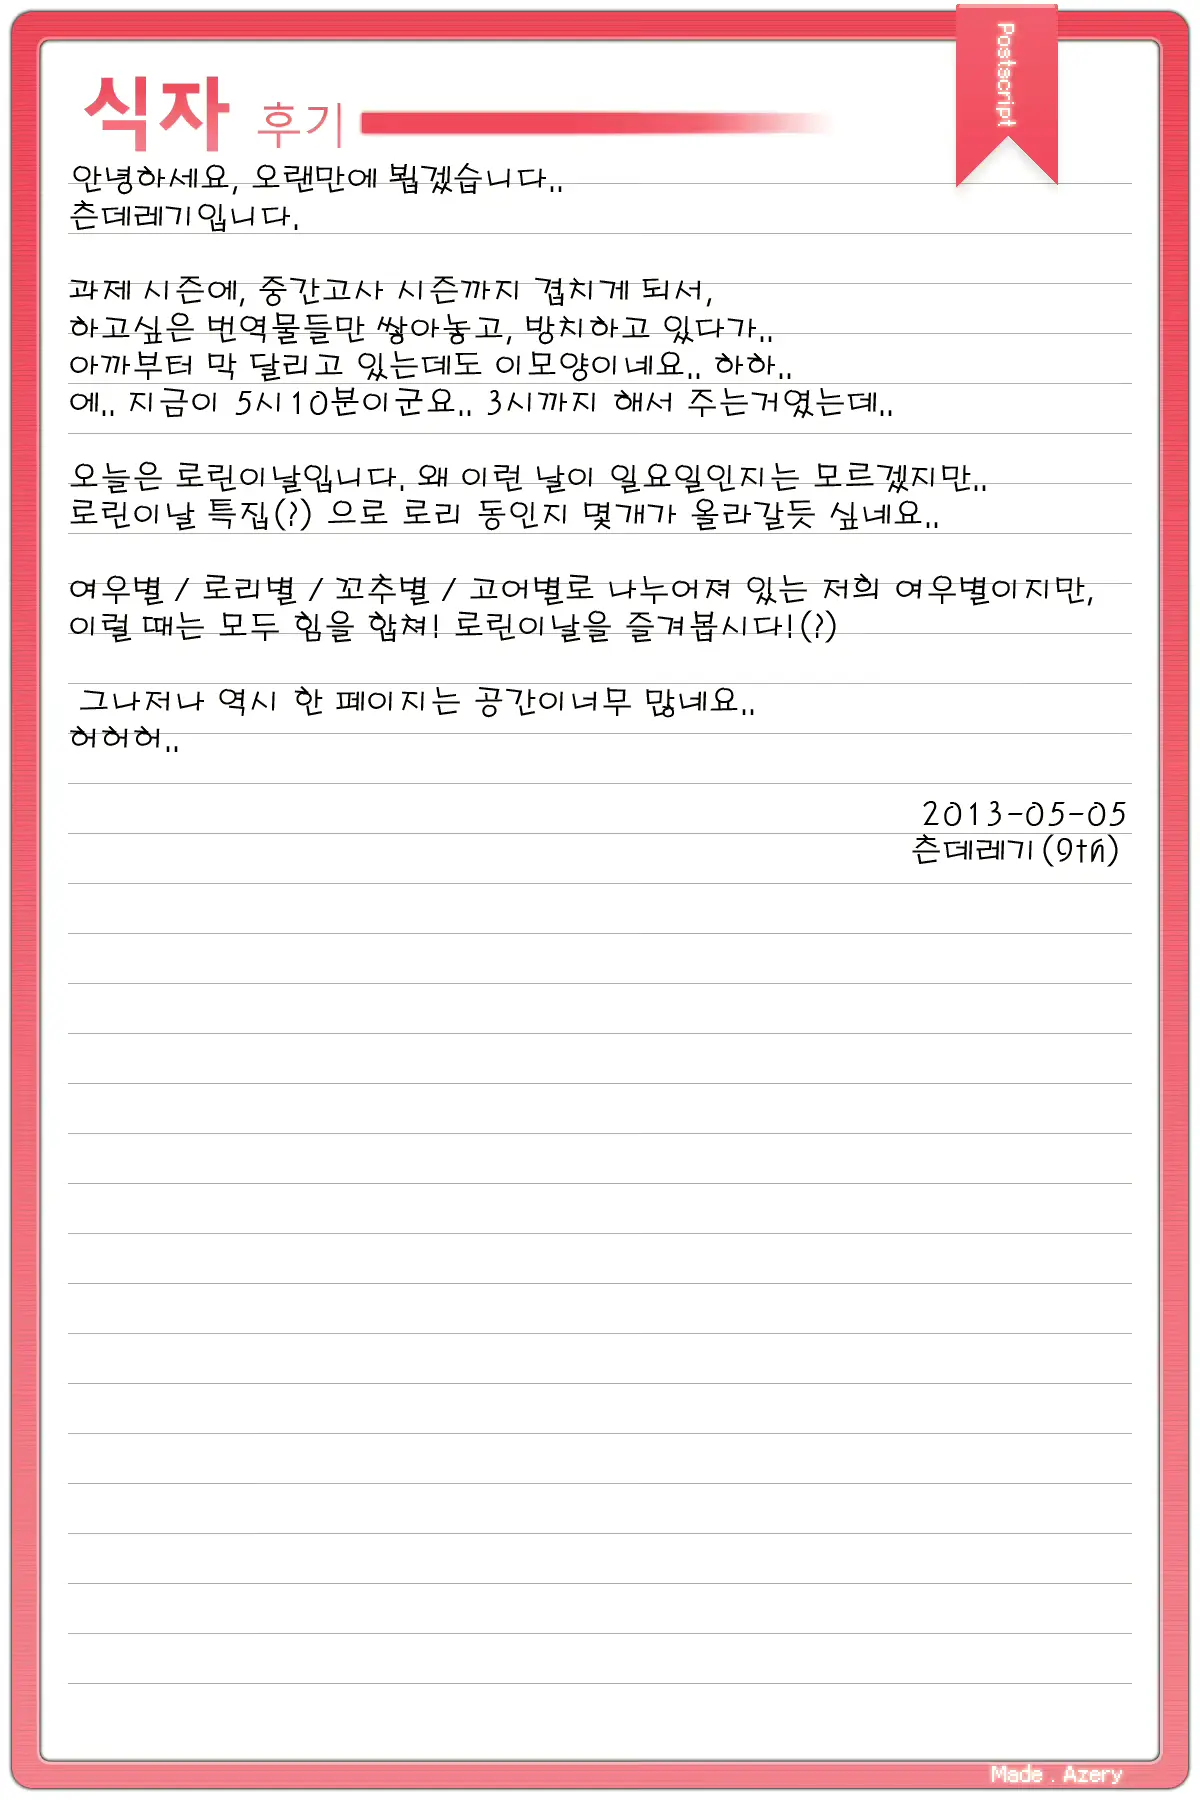 Postscript
식자 후기
안녕하세요, 오랜만에 뵙겠습니다..
츤데레기입니다.
과제 시즌에, 중간고사 시즌까지 겹치게 되서,
하고싶은 번역물들만 쌓아놓고, 방치하고 있다가..
아까부터 막 달리고 있는데도 이모양이네요.. 하하..
에.. 지금이 5시10분이군요.. 3시까지 해서 주는거였는데..
오늘은 로린이날입니다. 왜 이런 날이 일요일인지는 모르겠지만..
로린이날 특집(?) 으로 로리 동인지 몇개가 올라갈듯 싶네요..
여우별 / 로리별 / 꼬추별 / 고어별로 나누어져 있는 저희 여우별이지만,
이럴 때는 모두 힘을 합쳐! 로린이날을 즐겨봅시다!(?)
그나저나 역시 한 페이지는 공간이너무 많네요..
허허허..
2013-05-05
츤데레기(9th)
Made . Azery